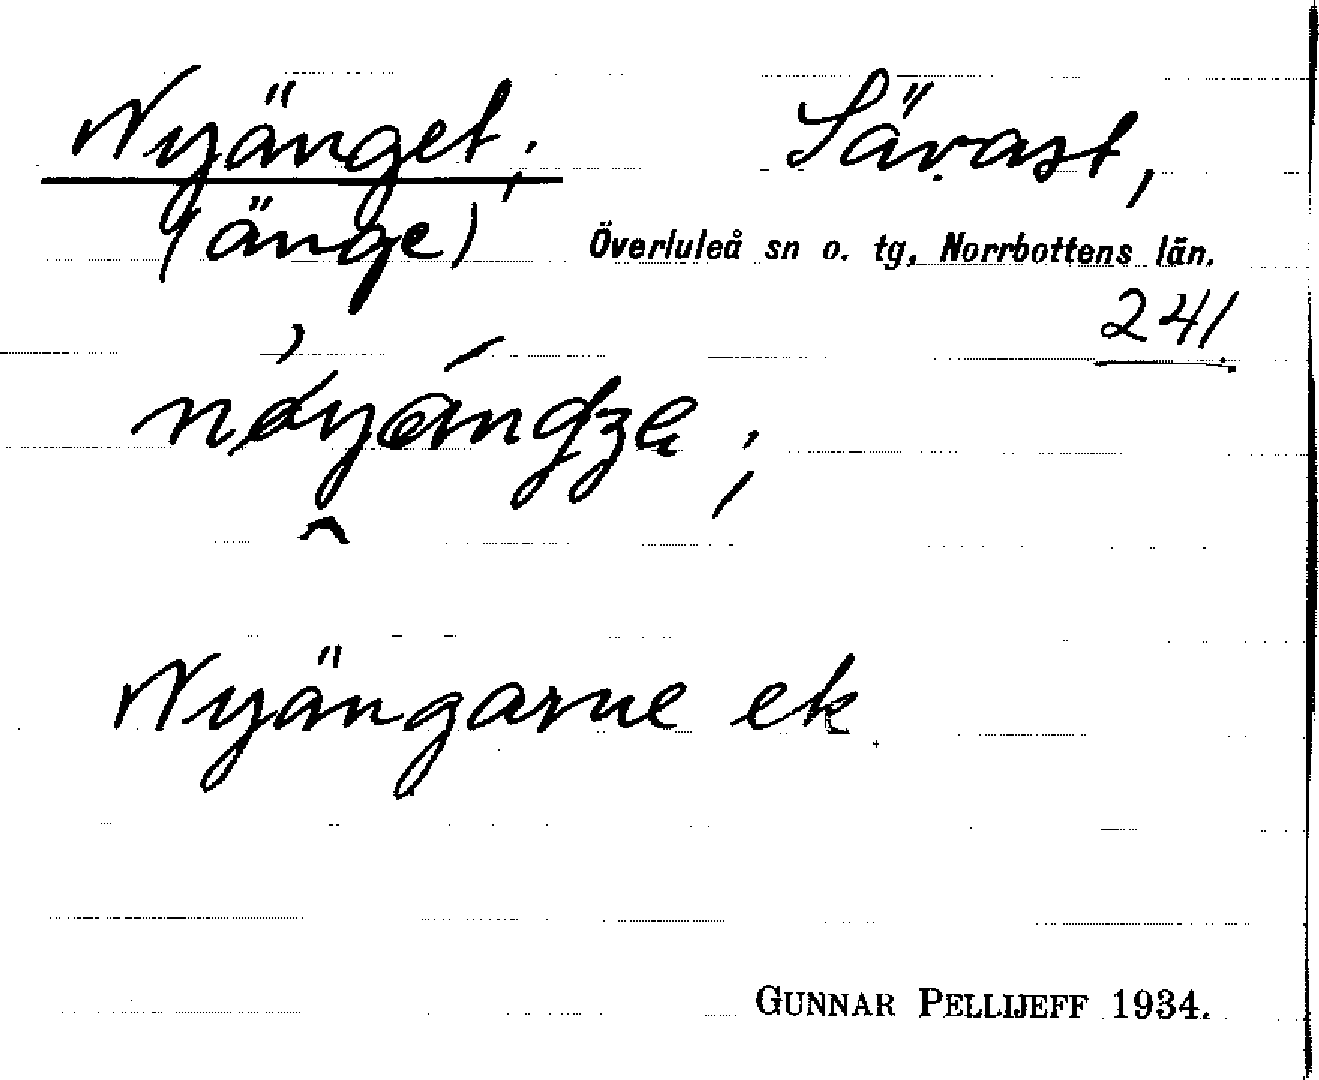 Nyänget; Sävast,
(änge) Överluleå sn o. tg, Norrbottens län.
241.
Nyängarne ek.
GUNNAR PELLIJEFF 1934.